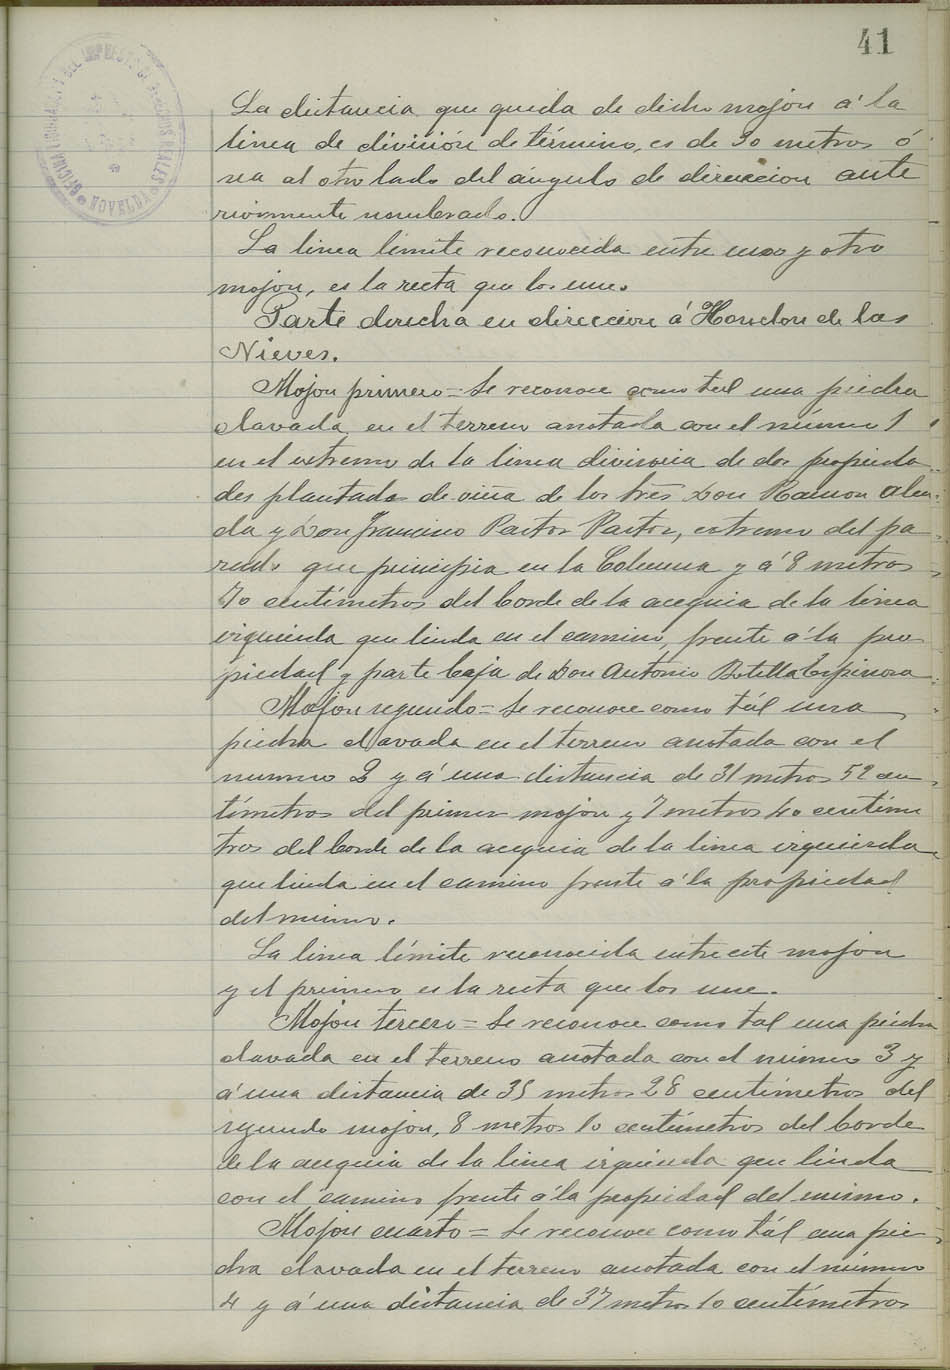 41
OFICINA LIQUIDADORA DEL IMPUESTO DE DERECHOS REALES NOVELDA
La distancia que queda de dicho mojon á la
linea de división de término, es de 30 metros ó
sea al otro lado del ángulo de direccion ante
riormente nombrado.
La linea limite reconocida entre uno y otro
mojon, es la recta que los une.
Parte derecha en direccion á Hondon de las
Nieves.
Mojon primero = Se reconoce como tal una piedra
clavada en el terreno anotada con el número 1
en el extremo de la linea divisoria de dos propieda
des plantadas de viña de los tres Don Ramon Alen
da y Don Francisco Pastor Pastor, extremo del pa
redo que principia en la Columna y á 8 metros
70 centímetros del borde de la acequia de la linea
izquierda que linda en el camino, frente á la pro
piedad y parte baja de Don Antonio Botella Espinosa
Mojon segundo = Se reconoce como tál una
piedra clavada en el terreno anotada con el
numero 2 y á una distancia de 31 metros 52 cen
tímetros del primer mojon y 7 metros 40 centíme
tros del borde de la acequia de la linea izquierda
que linda en el camino frente á la propiedad
del mismo.
La linea límite reconocida entre este mojon
y el primero es la recta que los une.
Mojon tercero = Se reconoce como tal una piedra
clavada en el terreno anotada con el número 3 y
á una distancia de 35 metros 28 centímetros del
segundo mojon, 8 metros 10 centímetros del borde
de la acequia de la linea izquierda que linda
con el camino frente á la propiedad del mismo.
Mojon cuarto = Se reconoce como tál una pie
dra clavada en el terreno anotada con el número
4 y á una distancia de 37 metros 10 centímetros